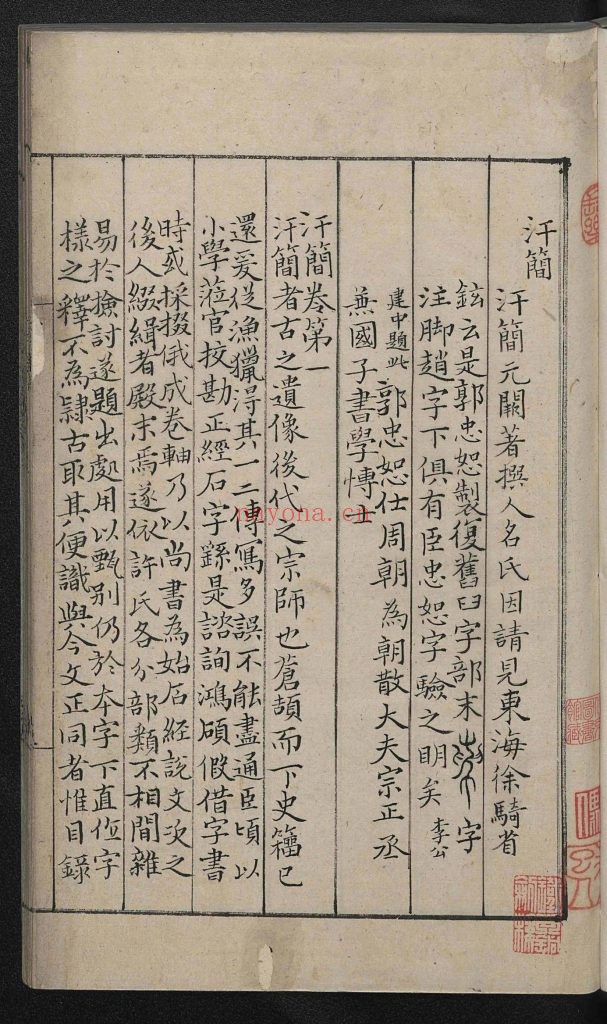 汗簡
汗簡元闕著撰人名氏因請見東海徐騎省
鉉云是郭忠恕製復舊臼字部末字
注脚趙字下俱有臣忠恕字驗之明矣李公
建中題此郭忠恕仕周朝為朝散大夫宗正丞
兼國子書學博士
汗簡卷第一
汗簡者古之遺像後代之宗師也蒼頡而下史籀已
還爰從漁獵淂其一二傳寫多誤不能盡通臣頃以
小學蒞官挍勘正經石字繇是諮詢鴻碩假借字書
時或採掇俄成卷軸乃以尚書為始石經說文次之
後人綴緝者殿末焉遂依許氏各分部類不相間雜
易於撿討遂題出處用以甄别仍於本字下直作字
樣之釋不為隸古取其便識與今文正同者惟目錄
nayona.cn